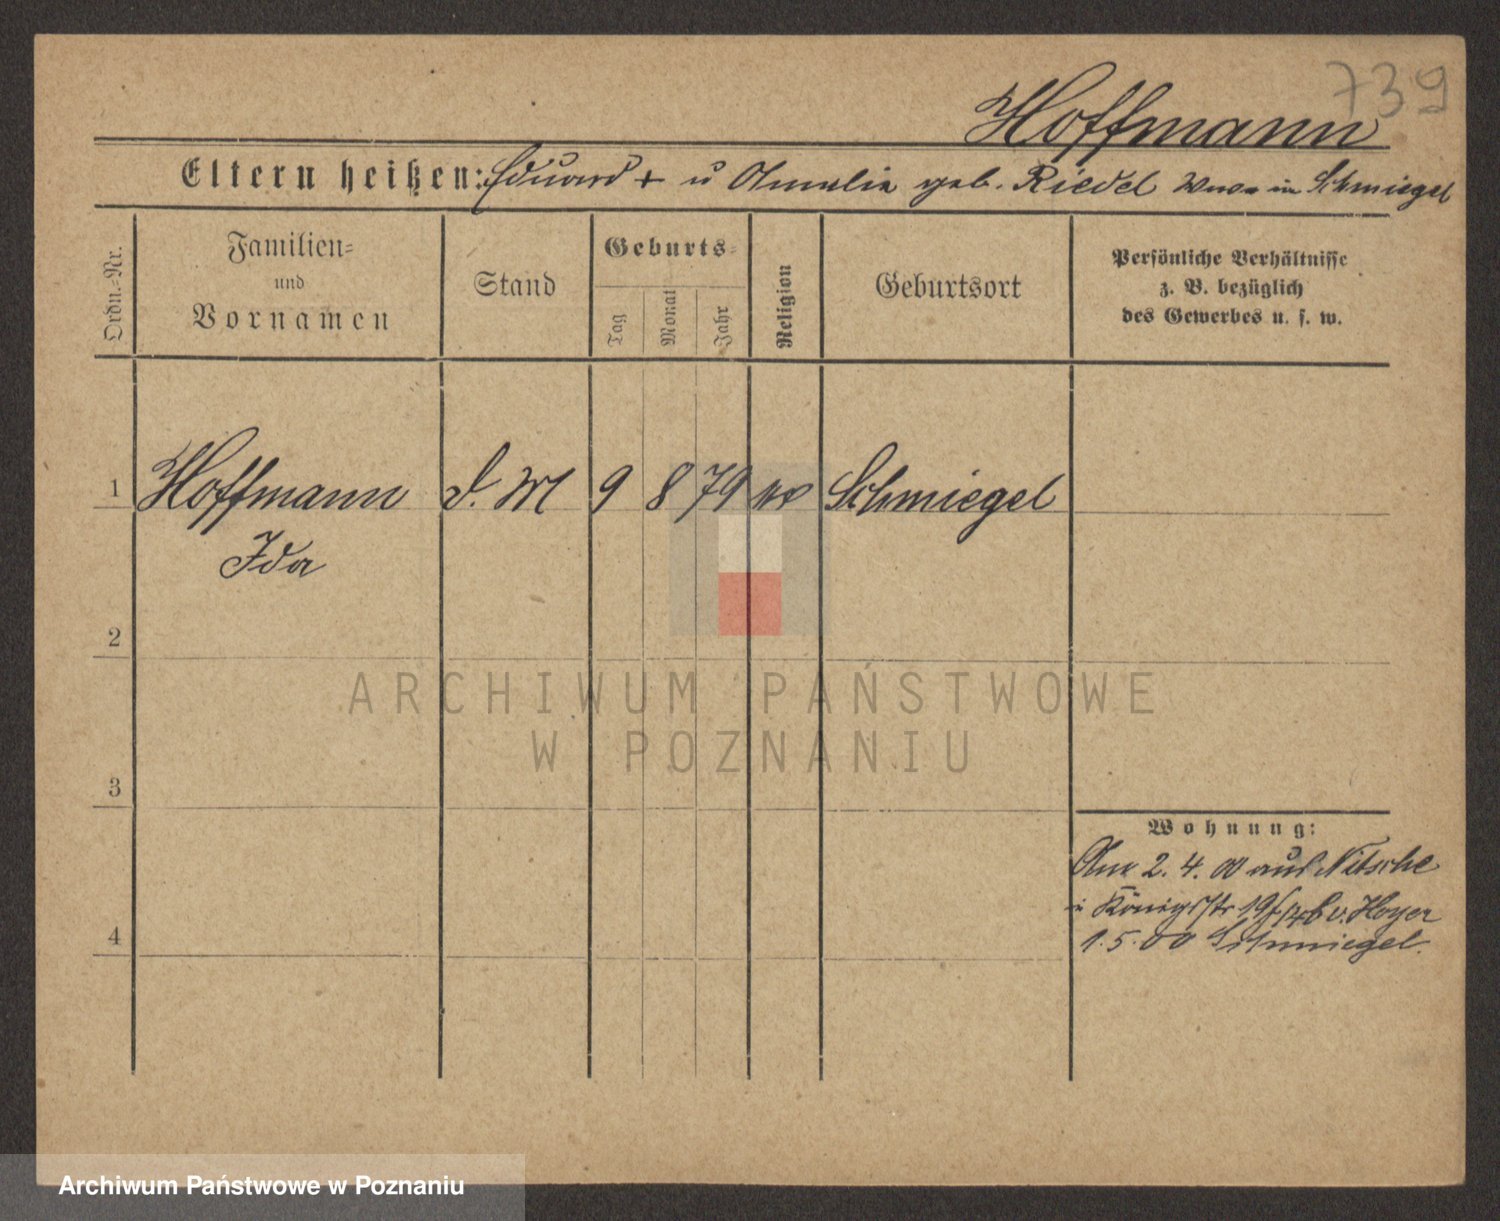 739
Hoffmann
Eltern heißen: Eduard + u Amalie geb. Riedel in Schmiegel
Ordn.-Nr.
Familien-
und
Vornamen
Stand
Geburts-
Tag
Monat
Jahr
Religion
Geburtsort
Persönliche Verhältnisse
z. B. bezüglich
des Gewerbes u. s. w.
1 Hoffmann d. M 9 8 79 Schmiegel
Ida
2
ARCHIWUM PAŃSTWOWE
W POZNANIU
3
Wohnung:
2. 4. 00 aus Nitsche
Königstr 19 b v. Hoyer
4
1. 5. 00 Schmiegel.
Archiwum Państwowe w Poznaniu